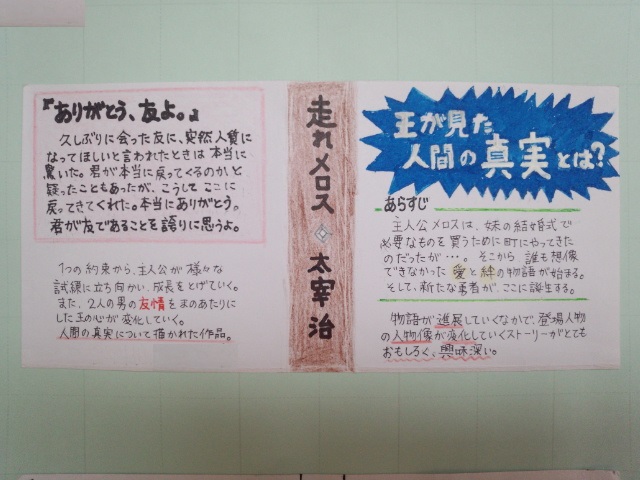 『ありがとう、友よ。』
久しぶりに会った友に、突然人質に
なってほしいと言われたときは本当に
驚いた。君が本当に戻ってくるのかと
疑ったこともあったが、こうしてここに
戻ってきてくれた。本当にありがとう。
君が友であることを誇りに思うよ。
1つの約束から、主人公が様々な
試練に立ち向かい、成長をとげていく。
また、2人の男の友情をまのあたりに
した王の心が変化していく。
人間の真実について描かれた作品。
走れメロス ◇ 太宰治
王が見た
人間の真実とは?
あらすじ
主人公メロスは、妹の結婚式で
必要なものを買うために町にやってきた
のだったが…。そこから誰も想像
できなかった愛と絆の物語が始まる。
そして、新たな勇者が、ここに誕生する。
物語が進展していくなかで、登場人物
の人物像が変化していくストーリーがとても
おもしろく、興味深い。